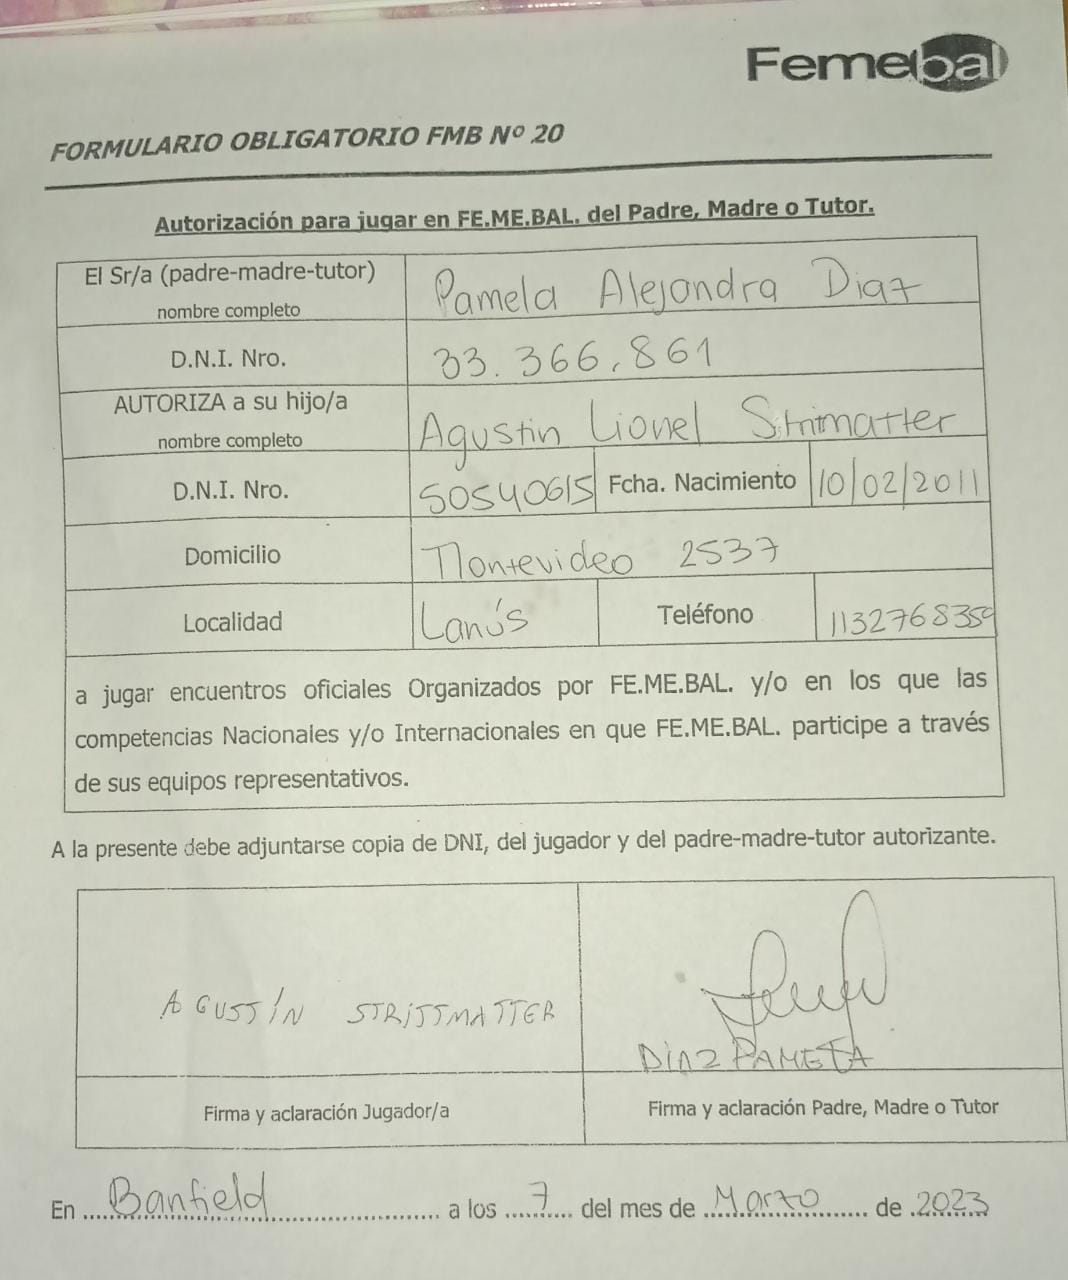 Femebal
FORMULARIO OBLIGATORIO FMB Nº 20
Autorización para jugar en FE.ME.BAL. del Padre, Madre o Tutor.
El Sr/a (padre-madre-tutor)
nombre completo
Pamela Alejandra Diaz
D.N.I. Nro. 33.366.861
AUTORIZA a su hijo/a
nombre completo
Agustin Lionel
D.N.I. Nro. 50540615 Fcha. Nacimiento 10/02/2011
Domicilio Montevideo 2537
Localidad Lanús Teléfono 1132768359
a jugar encuentros oficiales Organizados por FE.ME.BAL. y/o en los que las
competencias Nacionales y/o Internacionales en que FE.ME.BAL. participe a través
de sus equipos representativos.
A la presente debe adjuntarse copia de DNI, del jugador y del padre-madre-tutor autorizante.
AGUSTÍN STRITTMATTER
DIAZ PAMELA
Firma y aclaración Jugador/a
Firma y aclaración Padre, Madre o Tutor
En Banfield a los 7 del mes de Marzo de 2023